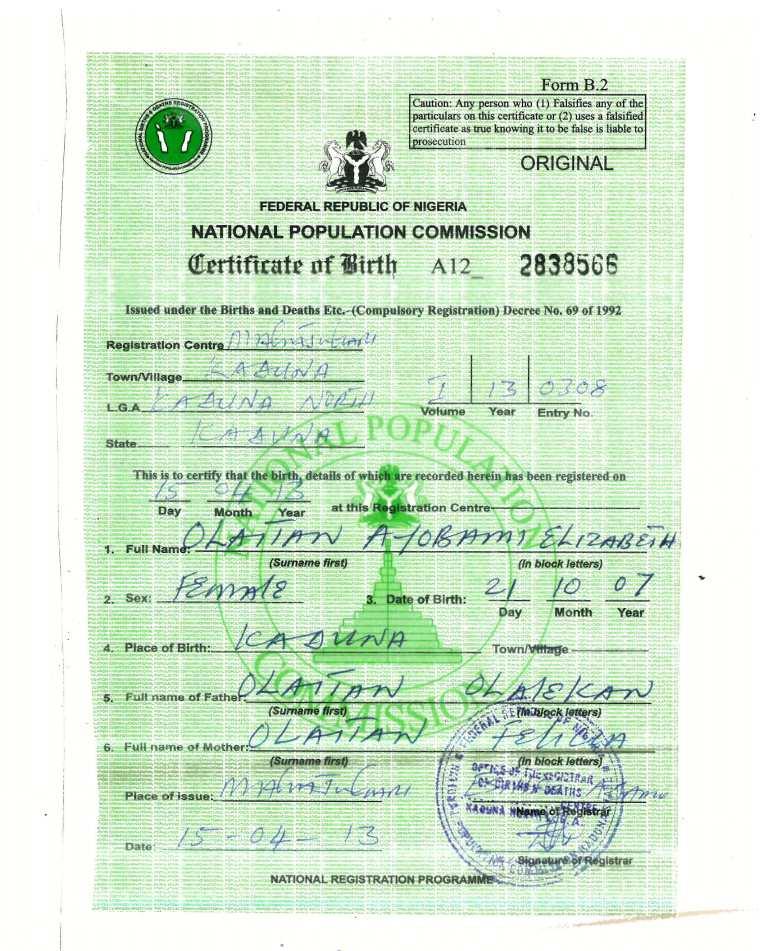 Form B.2
Caution: Any person who (1) Falsifies any of the
particulars on this certificate or (2) uses a falsified
certificate as true knowing it to be false is liable to
prosecution
ORIGINAL
FEDERAL REPUBLIC OF NIGERIA
NATIONAL POPULATION COMMISSION
Certificate of Birth A12_ 2838566
Issued under the Births and Deaths Etc.-(Compulsory Registration) Decree No. 69 of 1992
Registration Centre
Town/Village KADUNA
L.G.A KADUNA NORTH
I 13 0308
Volume Year Entry No.
State KADUNA
This is to certify that the birth, details of which are recorded herein has been registered on
15 04 13
Day Month Year at this Registration Centre
1. Full Name: OLAITAN AYOBAMI ELIZABETH
(Surname first) (In block letters)
2. Sex: FEMALE 3. Date of Birth: 21 10 07
Day Month Year
4. Place of Birth: KADUNA Town/Village
5. Full name of Father: OLAITAN OLALEKAN
(Surname first) (In block letters)
6. Full name of Mother: OLAITAN FELICIA
(Surname first) (In block letters)
Place of issue:
Name of Registrar
Date: 15-04-13
Signature of Registrar
NATIONAL REGISTRATION PROGRAMME
NATIONAL POPULATION COMMISSION
OFFICE OF THE REGISTRAR
OF BIRTHS N DEATHS